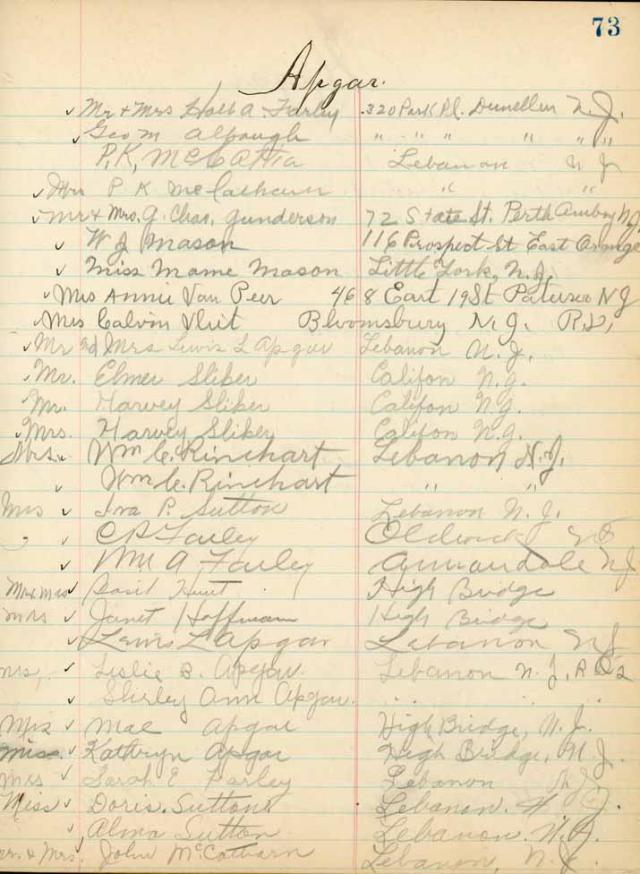 73
Apgar.
Mr & Mrs A. Farley 320 Park Pl. Dunellen N.J.
Geo M Albaugh " " " " " "
P.K. Lebanon N J
P K McCalhern " "
Mr & Mrs. G. Chas. Gunderson 72 State St. Perth Amboy N.J.
W J Mason 116 Prospect St East Orange
Miss Mame Mason Little York, N.J.
Mrs Annie Van Peer 468 East 19 St Paterson N J
Mrs Calvin Vliet Bloomsbury N.J. R.D.
Mr and Mrs Lewis L Apgar Lebanon N.J.
Mr. Elmer Sliker Califon N.J.
Mr. Harvey Sliker Califon N.J.
Mrs. Harvey Sliker Califon N.J.
Mrs. Wm C. Rinehart Lebanon N.J.
Wm C. Rinehart " "
Mrs Iva P. Sutton Lebanon N.J.
C P Farley Oldwick N J
Wm A Farley Annandale N J
Mr & Mrs Basil Hunt High Bridge
Mrs Janet Hoffman High Bridge
Lewis L Apgar Lebanon N J
Mrs. Leslie B. Apgar Lebanon N.J. R D 2
Shirley Ann Apgar. " " " "
Mrs Mae Apgar High Bridge, N.J.
Miss. Kathryn Apgar High Bridge, N.J.
Mrs Sarah E Farley Lebanon N J
Miss Doris Sutton Lebanon. N.J.
Alma Sutton Lebanon. N.J.
Mr. & Mrs. John McCatharn Lebanon, N.J.